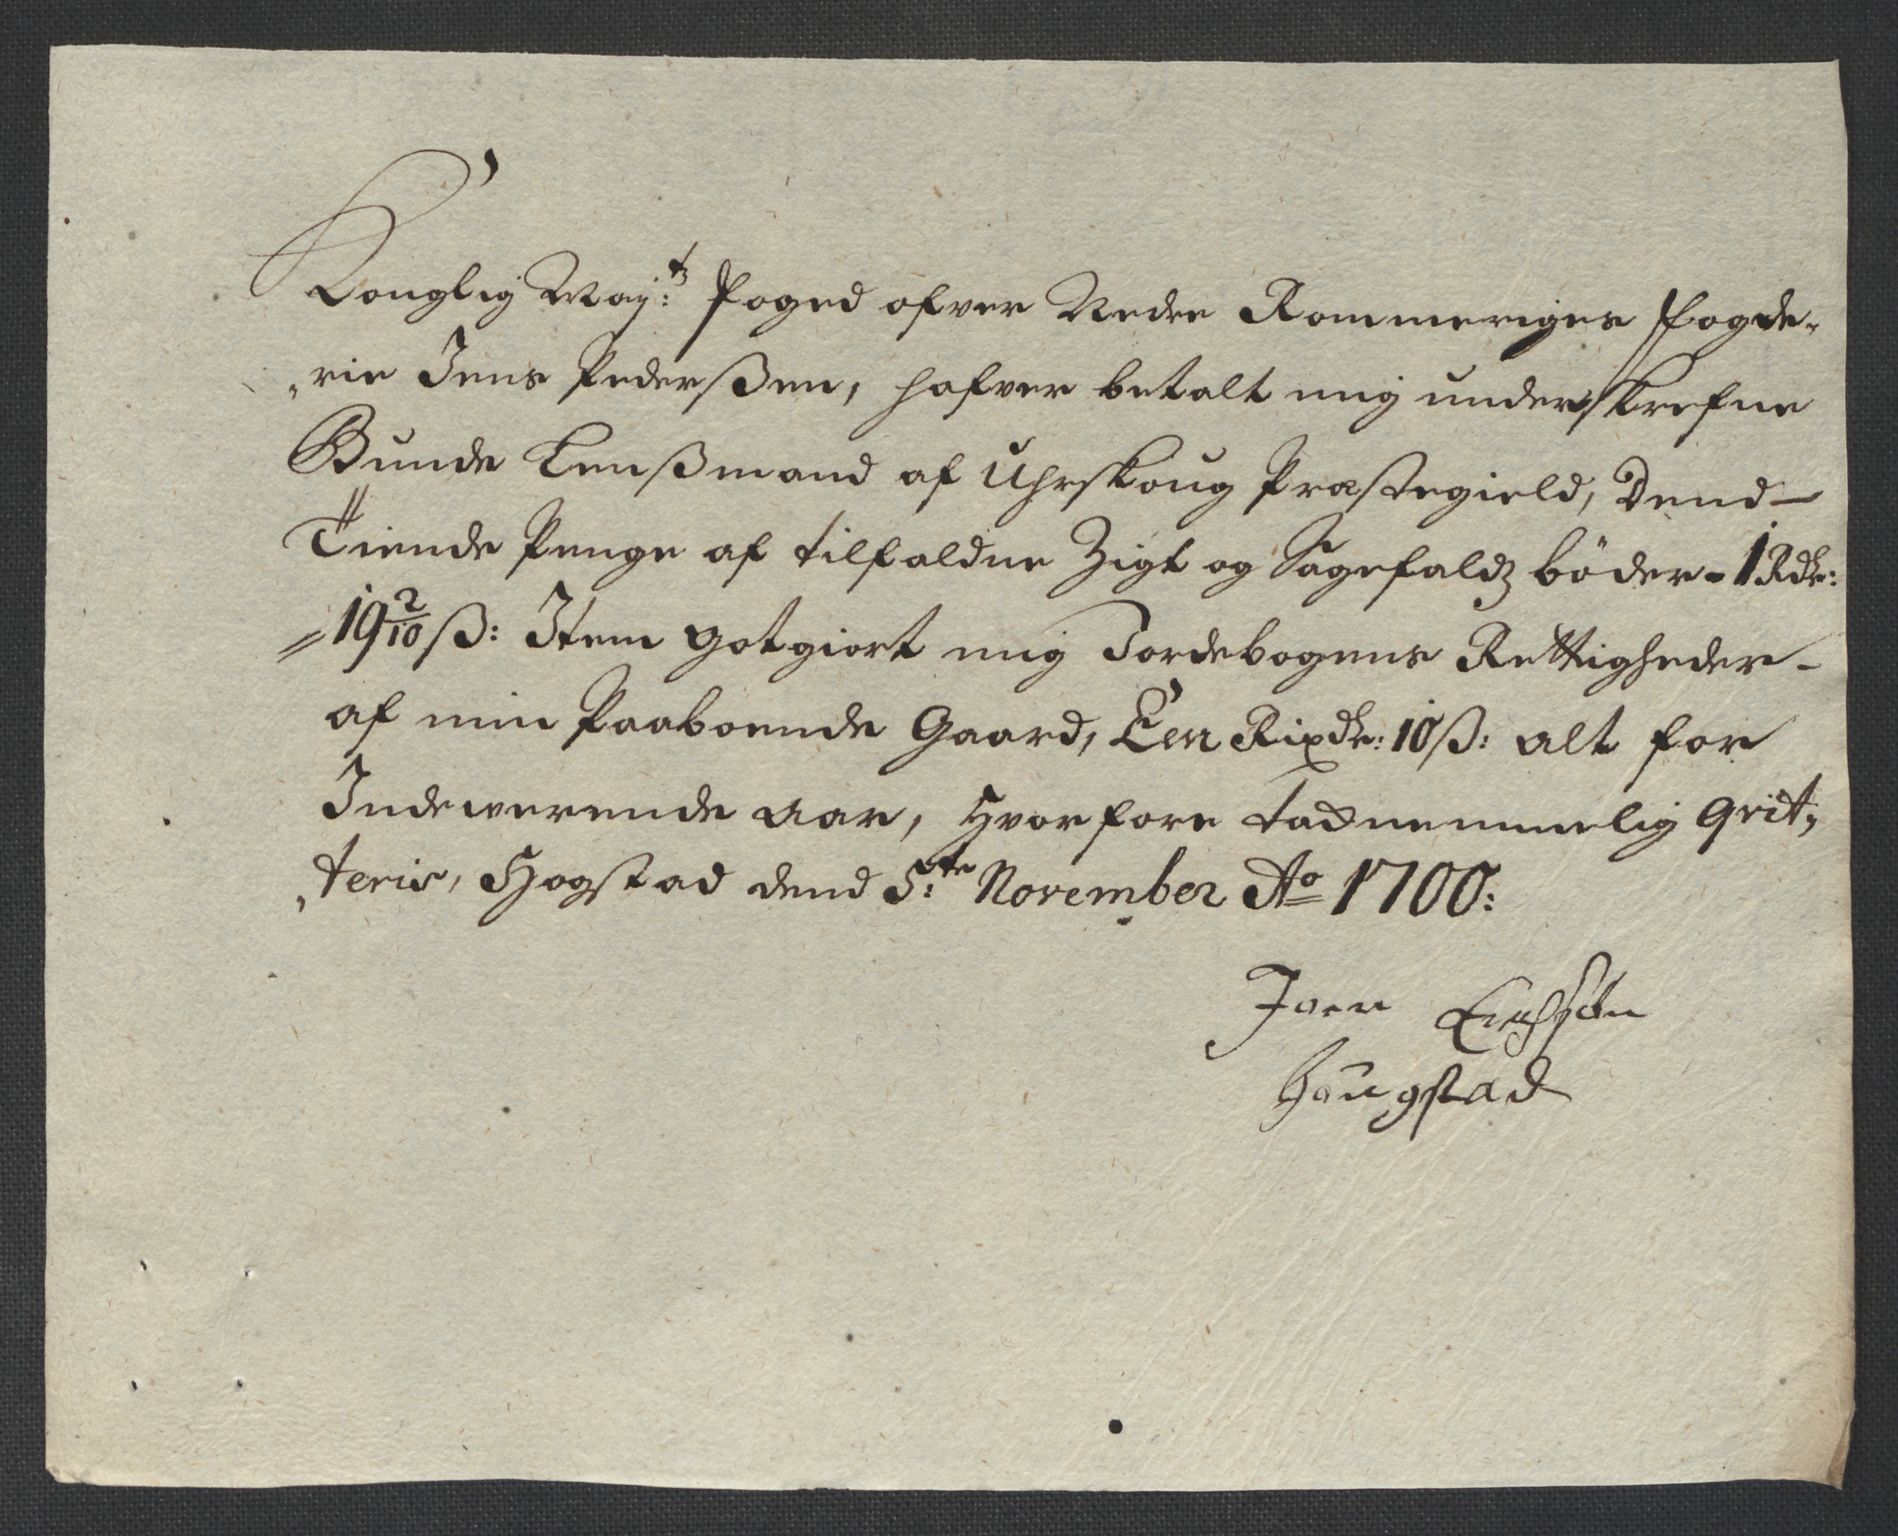 Konglig May:tz Foged ofver Nedre Rommeriges Fogde-
,rie Jens Pederßen, hafver betalt mig underskrefne
Bunde Lenßmand af Uhrskoug Præstegield, Dend
Tiende Penge af tilfaldne Zigt og Sagefaldz bøder - 1 Rdr:
19 2/10 ß: Item gotgiort mig Jordebogens Rettigheder
af min Paaboende Gaard, Een Rixdr: 10 ß: alt for
Indeverende Aar, Hvorfore tachnemmelig Qvit,
,teris, Hogstad dend 5:te November Ao 1700:
Joen Erichsøn
Haugstad